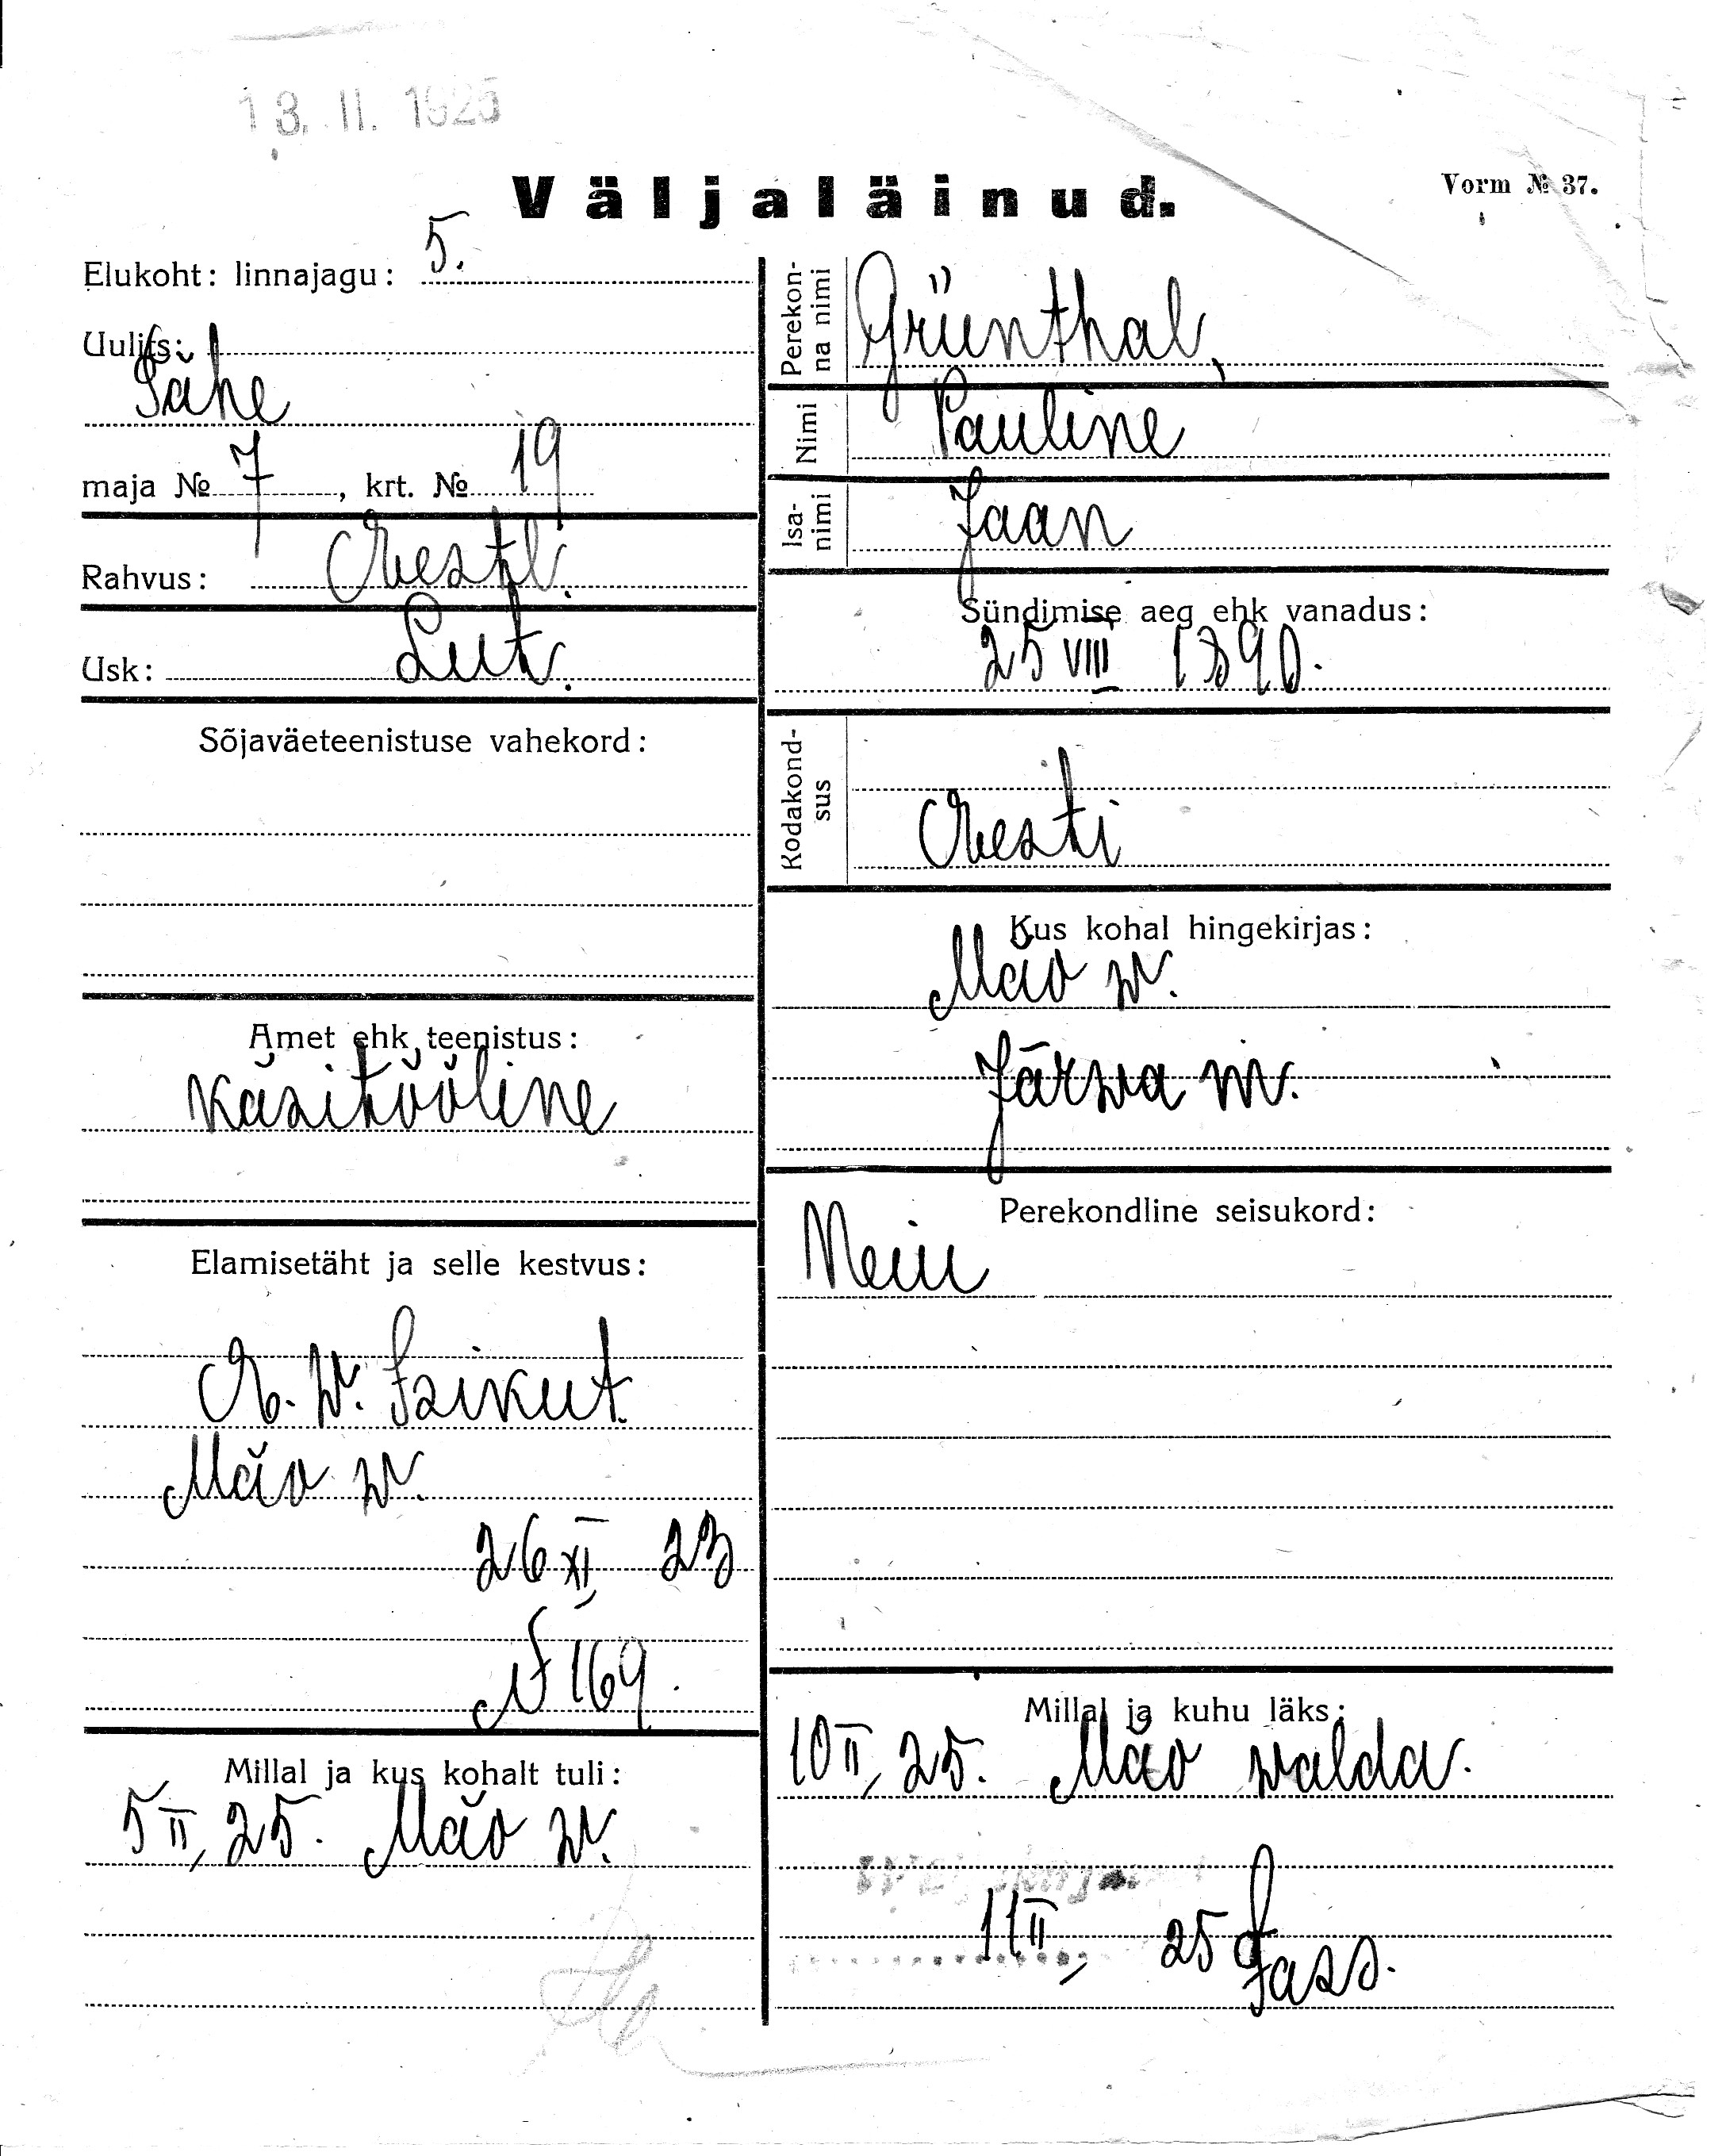 13. II. 1925
Väljaläinud.
Vorm № 37.
Elukoht: linnajagu: 5.
Uulits:
Tähe
maja № 7, krt. № 19
Rahvus: Eestl.
Usk: Lut.
Sõjaväeteenistuse vahekord:
Amet ehk teenistus:
Käsitööline
Elamisetäht ja selle kestvus:
E. W. Isikut.
Mäo w.
26 XI 23
№ 169.
Millal ja kus kohalt tuli:
5 II, 25. Mäo w.
Perekon-
na nimi
Grünthal,
Nimi Pauline
Isa-
nimi
Jaan
Sündimise aeg ehk vanadus:
25 VIII 1890.
Kodakond-
sus
Eesti
Kus kohal hingekirjas:
Mäo w.
Järwa m.
Perekondline seisukord:
Neiu
Millal ja kuhu läks:
10 II, 25. Mäo walda.
11 II, 25